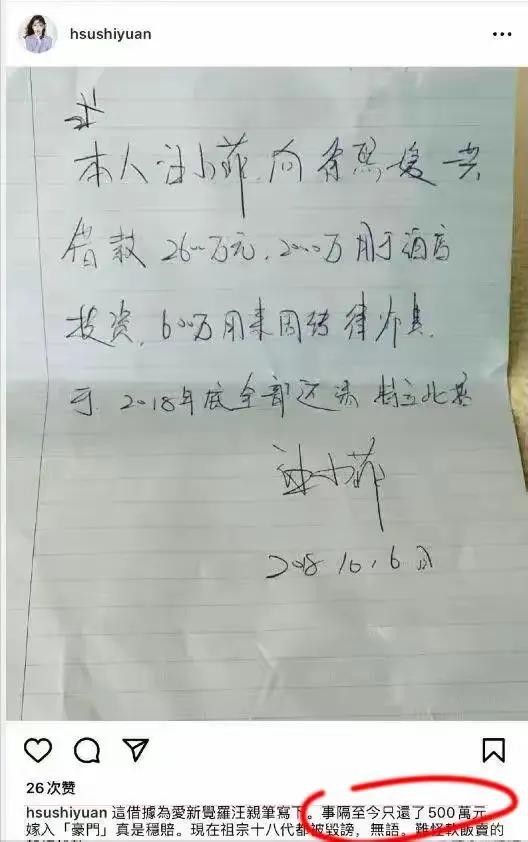 hsushiyuan
本人汪小菲,向徐熙媛共
借款2600万元,2000万用于酒店
投资,600万用来周转
于2018年底全部还清 特立此
汪小菲
26 次赞
hsushiyuan 這借據為愛新覺羅汪親筆寫下。事隔至今只還了500萬元
嫁入「豪門」真是穩賠。現在祖宗十八代都被毀謗，無語。難怪軟飯賣的